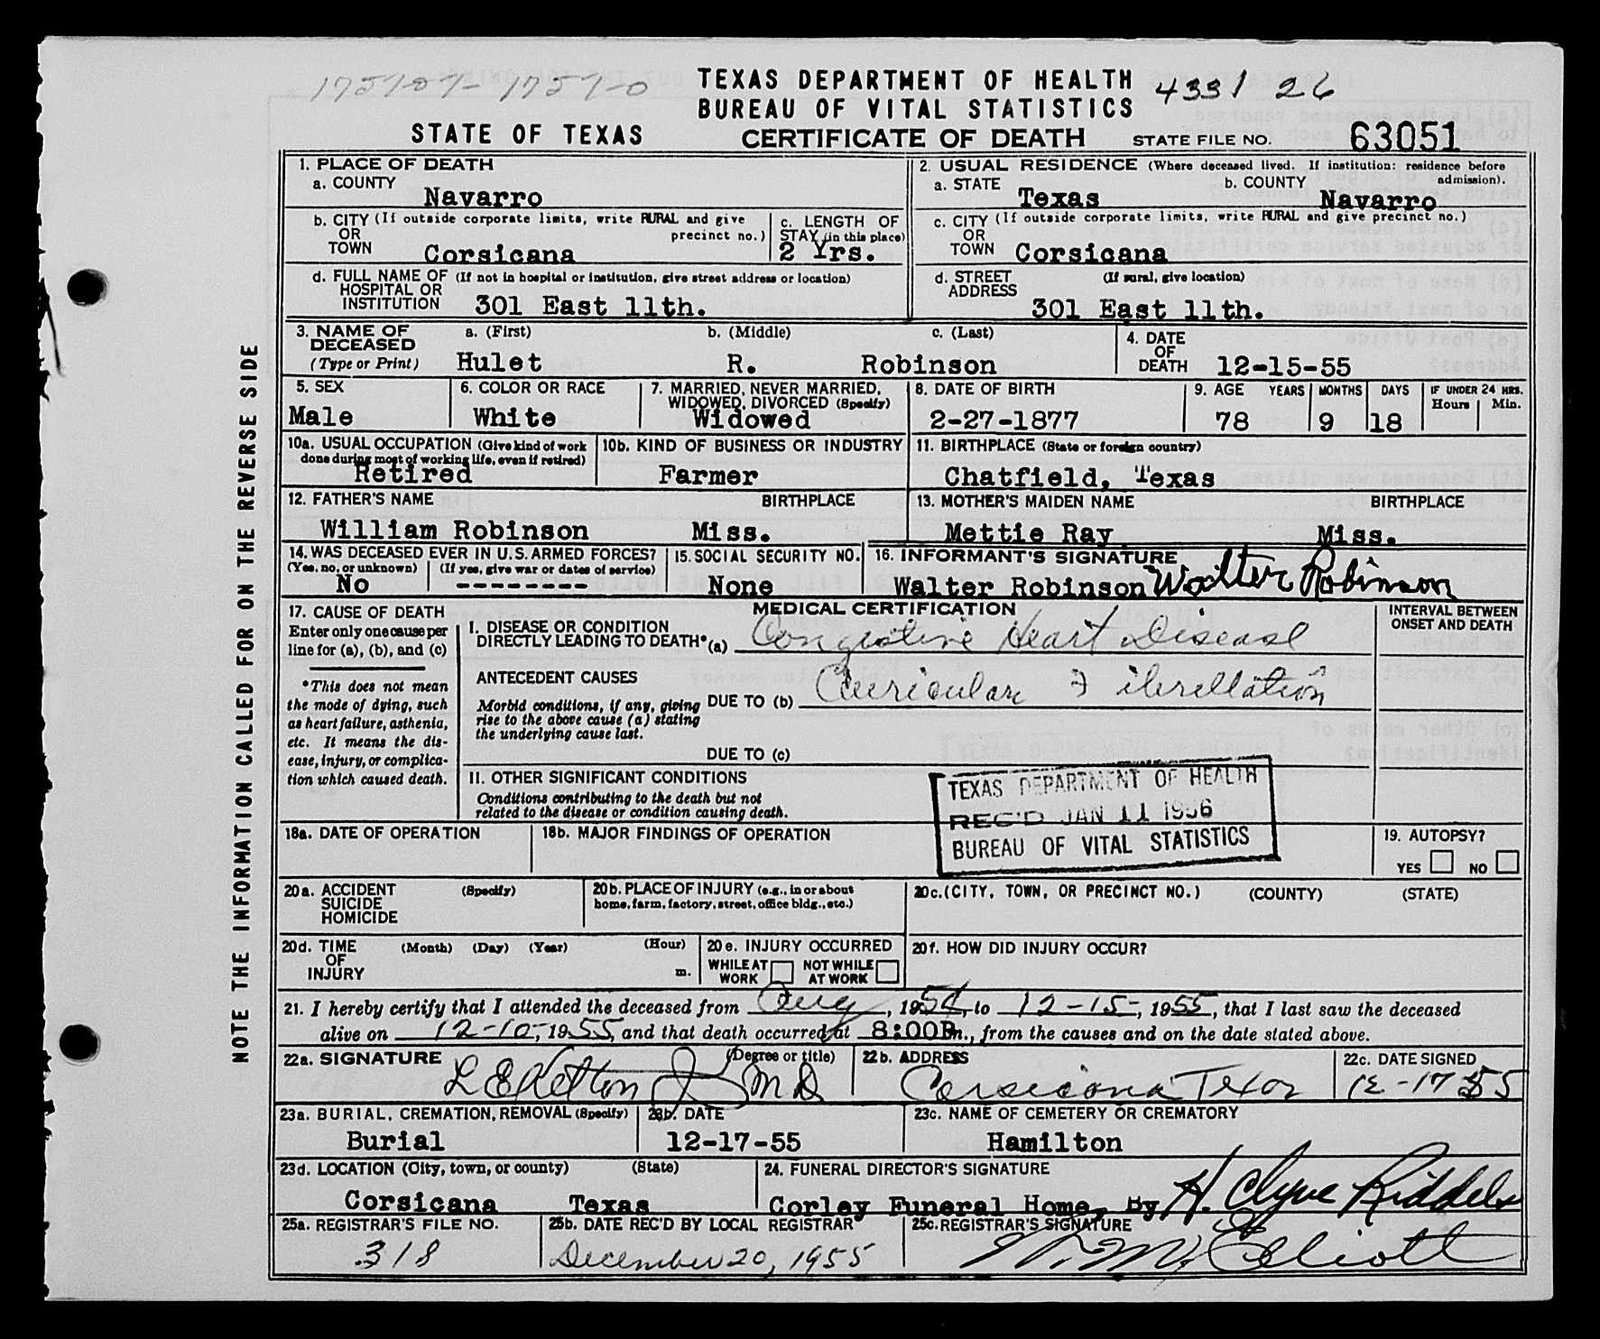 TEXAS DEPARTMENT OF HEALTH
BUREAU OF VITAL STATISTICS
4331 26
STATE OF TEXAS
CERTIFICATE OF DEATH
STATE FILE NO. 63051
NOTE THE INFORMATION CALLED FOR ON THE REVERSE SIDE
1. PLACE OF DEATH
a. COUNTY
Navarro
2. USUAL RESIDENCE (Where deceased lived. If institution: residence before admission).
a. STATE
Texas
b. COUNTY
Navarro
b. CITY OR TOWN (If outside corporate limits, write RURAL and give precinct no.)
Corsicana
c. LENGTH OF STAY (in this place)
2 Yrs.
c. CITY OR TOWN (If outside corporate limits, write RURAL and give precinct no.)
Corsicana
d. FULL NAME OF HOSPITAL OR INSTITUTION (If not in hospital or institution, give street address or location)
301 East 11th.
d. STREET ADDRESS (If rural, give location)
301 East 11th.
3. NAME OF DECEASED (Type or Print)
a. (First) b. (Middle) c. (Last)
Hulet R. Robinson
4. DATE OF DEATH 12-15-55
5. SEX
Male
6. COLOR OR RACE
White
7. MARRIED, NEVER MARRIED, WIDOWED, DIVORCED (Specify)
Widowed
8. DATE OF BIRTH
2-27-1877
9. AGE YEARS MONTHS DAYS IF UNDER 24 HRS. Hours Min.
78 9 18
10a. USUAL OCCUPATION (Give kind of work done during most of working life, even if retired)
Retired
10b. KIND OF BUSINESS OR INDUSTRY
Farmer
11. BIRTHPLACE (State or foreign country)
Chatfield, Texas
12. FATHER'S NAME BIRTHPLACE
William Robinson Miss.
13. MOTHER'S MAIDEN NAME BIRTHPLACE
Mettie Ray Miss.
14. WAS DECEASED EVER IN U.S. ARMED FORCES?
(Yes, no, or unknown) (If yes, give war or dates of service)
No ---------
15. SOCIAL SECURITY NO.
None
16. INFORMANT'S SIGNATURE
Walter Robinson Walter Robinson
17. CAUSE OF DEATH
Enter only one cause per line for (a), (b), and (c)
*This does not mean the mode of dying, such as heart failure, asthenia, etc. It means the disease, injury, or complication which caused death.
MEDICAL CERTIFICATION
INTERVAL BETWEEN ONSET AND DEATH
I. DISEASE OR CONDITION DIRECTLY LEADING TO DEATH* (a) Congestive Heart Disease
ANTECEDENT CAUSES
Morbid conditions, if any, giving rise to the above cause (a) stating the underlying cause last.
DUE TO (b) Auricular Fibrillation
DUE TO (c)
II. OTHER SIGNIFICANT CONDITIONS
Conditions contributing to the death but not related to the disease or condition causing death.
TEXAS DEPARTMENT OF HEALTH
REC'D JAN 11 1956
BUREAU OF VITAL STATISTICS
18a. DATE OF OPERATION
18b. MAJOR FINDINGS OF OPERATION
19. AUTOPSY?
YES NO
20a. ACCIDENT SUICIDE HOMICIDE (Specify)
20b. PLACE OF INJURY (e.g., in or about home, farm, factory, street, office bldg., etc.)
20c. (CITY, TOWN, OR PRECINCT NO.) (COUNTY) (STATE)
20d. TIME OF INJURY (Month) (Day) (Year) (Hour) m.
20e. INJURY OCCURRED
WHILE AT WORK NOT WHILE AT WORK
20f. HOW DID INJURY OCCUR?
21. I hereby certify that I attended the deceased from Aug, 1954, to 12-15-, 1955, that I last saw the deceased
alive on 12-10-, 1955, and that death occurred at 8:00P m., from the causes and on the date stated above.
22a. SIGNATURE (Degree or title)
L E Kelton Jr MD
22b. ADDRESS
Corsicana Texas
22c. DATE SIGNED
12-17-55
23a. BURIAL, CREMATION, REMOVAL (Specify)
Burial
23b. DATE
12-17-55
23c. NAME OF CEMETERY OR CREMATORY
Hamilton
23d. LOCATION (City, town, or county) (State)
Corsicana Texas
24. FUNERAL DIRECTOR'S SIGNATURE
Corley Funeral Home, By H. Clyve
25a. REGISTRAR'S FILE NO.
318
25b. DATE REC'D BY LOCAL REGISTRAR
December 20, 1955
25c. REGISTRAR'S SIGNATURE
Elliott